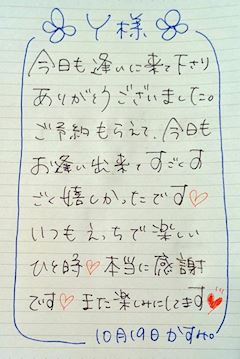 Y様
今日も逢いに来て下さり
ありがとうございました。
ご予約もらえて、今日も
お逢い出来てすごくす
ごく嬉しかったです♡
いつもえっちで楽しい
ひと時♡本当に感謝
です♡また楽しみにしてます♥
10月19日かすみ。